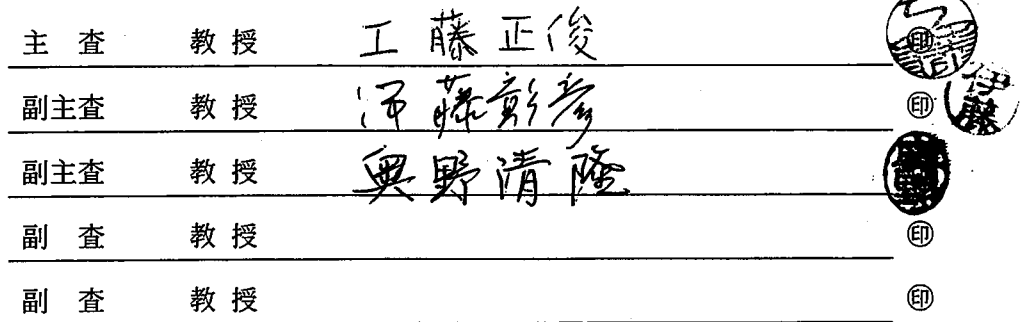 主 査 教 授 工藤正俊 ㊞
副主査 教 授 伊藤彰彦 ㊞ 伊藤
副主査 教 授 奥野清隆
副 査 教 授 ㊞
副 査 教 授 ㊞